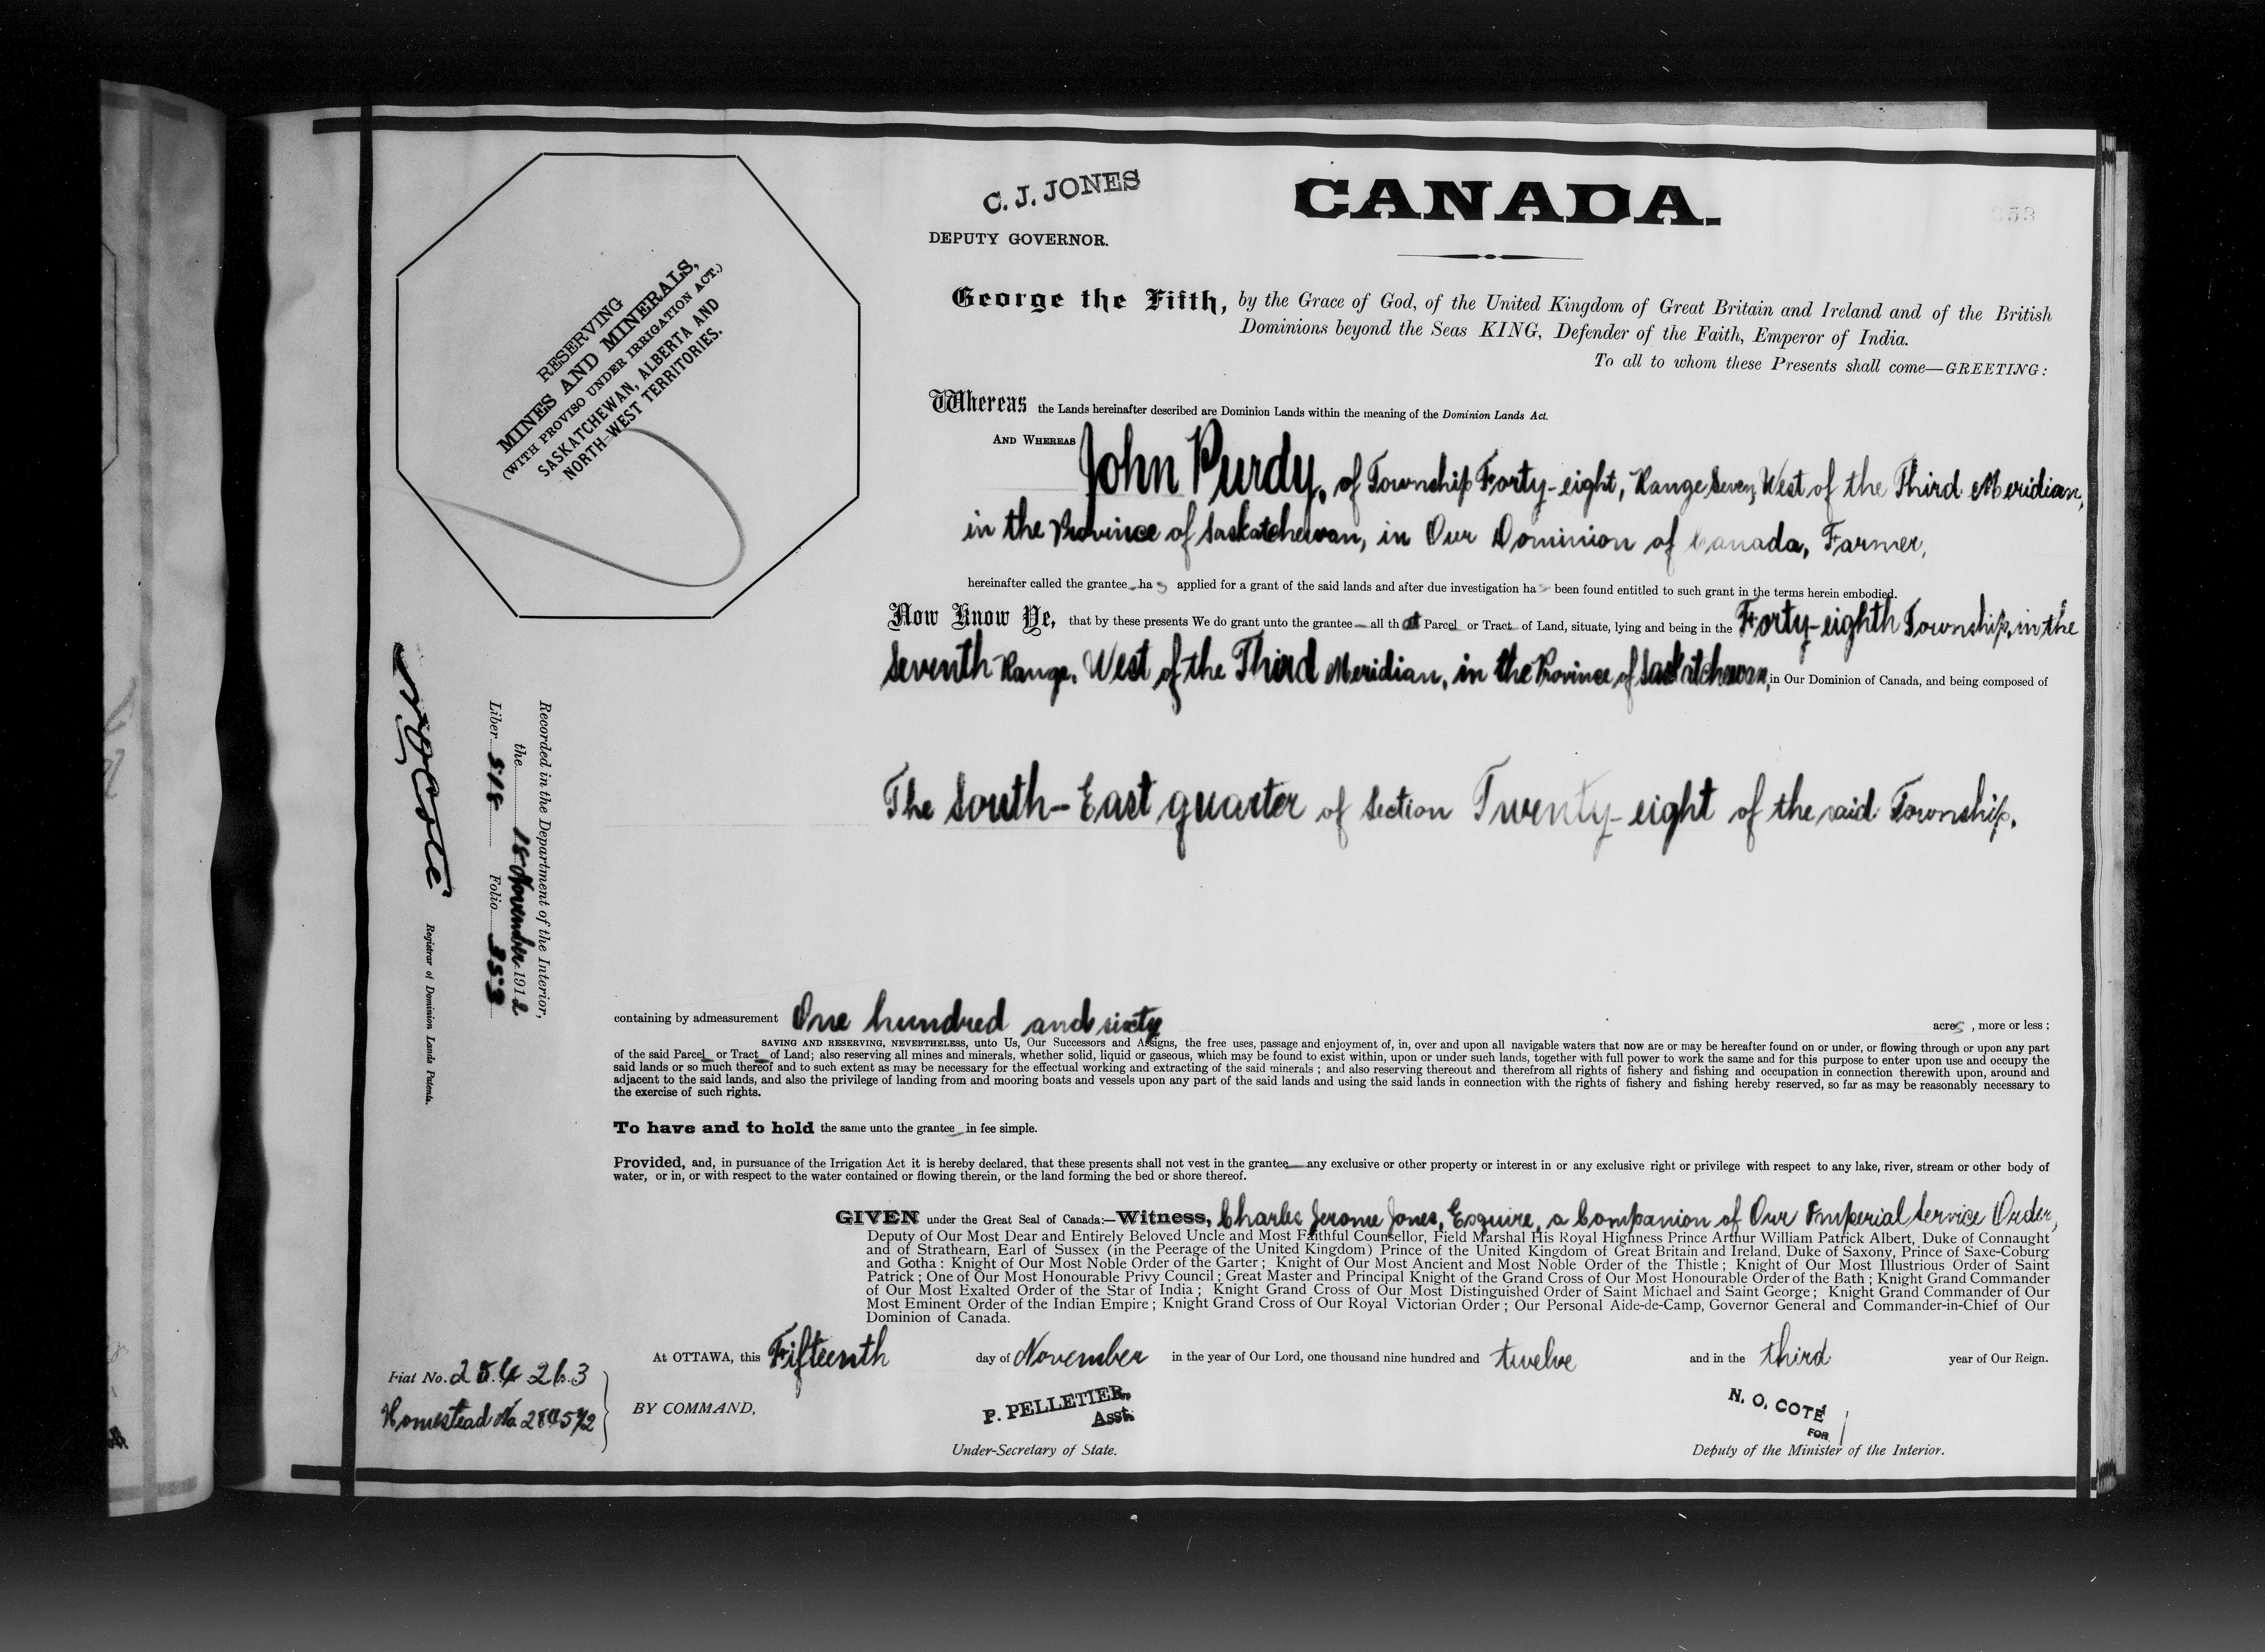 C. J. JONES
DEPUTY GOVERNOR.
CANADA.
George the Fifth, by the Grace of God, of the United Kingdom of Great Britain and Ireland and of the British
Dominions beyond the Seas KING, Defender of the Faith, Emperor of India.
To all to whom these Presents shall come—GREETING:
RESERVING
MINES AND MINERALS,
(WITH PROVISO UNDER IRRIGATION ACT.)
SASKATCHEWAN, ALBERTA AND
NORTH-WEST TERRITORIES.
Whereas the Lands hereinafter described are Dominion Lands within the meaning of the Dominion Lands Act.
AND WHEREAS John Purdy, of Township Forty-eight, Range Seven, West of the Third Meridian,
in the Province of Saskatchewan, in Our Dominion of Canada, Farmer,
hereinafter called the grantee has applied for a grant of the said lands and after due investigation has been found entitled to such grant in the terms herein embodied.
Now Know Ye, that by these presents We do grant unto the grantee — all that Parcel or Tract of Land, situate, lying and being in the Forty-eighth Township, in the
Seventh Range, West of the Third Meridian, in the Province of Saskatchewan, in Our Dominion of Canada, and being composed of
The South-East quarter of Section Twenty-eight of the said Township.
Recorded in the Department of the Interior,
the 18 November 1912
Liber 518 Folio 353
N O Coté
Registrar of Dominion Lands Patents.
containing by admeasurement One hundred and sixty acres, more or less;
SAVING AND RESERVING, NEVERTHELESS, unto Us, Our Successors and Assigns, the free uses, passage and enjoyment of, in, over and upon all navigable waters that now are or may be hereafter found on or under, or flowing through or upon any part
of the said Parcel or Tract of Land; also reserving all mines and minerals, whether solid, liquid or gaseous, which may be found to exist within, upon or under such lands, together with full power to work the same and for this purpose to enter upon use and occupy the
said lands or so much thereof and to such extent as may be necessary for the effectual working and extracting of the said minerals; and also reserving thereout and therefrom all rights of fishery and fishing and occupation in connection therewith upon, around and
adjacent to the said lands, and also the privilege of landing from and mooring boats and vessels upon any part of the said lands and using the said lands in connection with the rights of fishery and fishing hereby reserved, so far as may be reasonably necessary to
the exercise of such rights.
To have and to hold the same unto the grantee in fee simple.
Provided, and, in pursuance of the Irrigation Act it is hereby declared, that these presents shall not vest in the grantee—any exclusive or other property or interest in or any exclusive right or privilege with respect to any lake, river, stream or other body of
water, or in, or with respect to the water contained or flowing therein, or the land forming the bed or shore thereof.
GIVEN under the Great Seal of Canada:—Witness, Charles Jerome Jones, Esquire, a Companion of Our Imperial Service Order,
Deputy of Our Most Dear and Entirely Beloved Uncle and Most Faithful Counsellor, Field Marshal His Royal Highness Prince Arthur William Patrick Albert, Duke of Connaught
and of Strathearn, Earl of Sussex (in the Peerage of the United Kingdom) Prince of the United Kingdom of Great Britain and Ireland, Duke of Saxony, Prince of Saxe-Coburg
and Gotha: Knight of Our Most Noble Order of the Garter; Knight of Our Most Ancient and Most Noble Order of the Thistle; Knight of Our Most Illustrious Order of Saint
Patrick; One of Our Most Honourable Privy Council; Great Master and Principal Knight of the Grand Cross of Our Most Honourable Order of the Bath; Knight Grand Commander
of Our Most Exalted Order of the Star of India; Knight Grand Cross of Our Most Distinguished Order of Saint Michael and Saint George; Knight Grand Commander of Our
Most Eminent Order of the Indian Empire; Knight Grand Cross of Our Royal Victorian Order; Our Personal Aide-de-Camp, Governor General and Commander-in-Chief of Our
Dominion of Canada.
At OTTAWA, this Fifteenth day of November in the year of Our Lord, one thousand nine hundred and twelve and in the third year of Our Reign.
Fiat No.
Homestead No.
BY COMMAND,
P. PELLETIER,
Asst.
Under-Secretary of State.
N. O. COTÉ
FOR
Deputy of the Minister of the Interior.